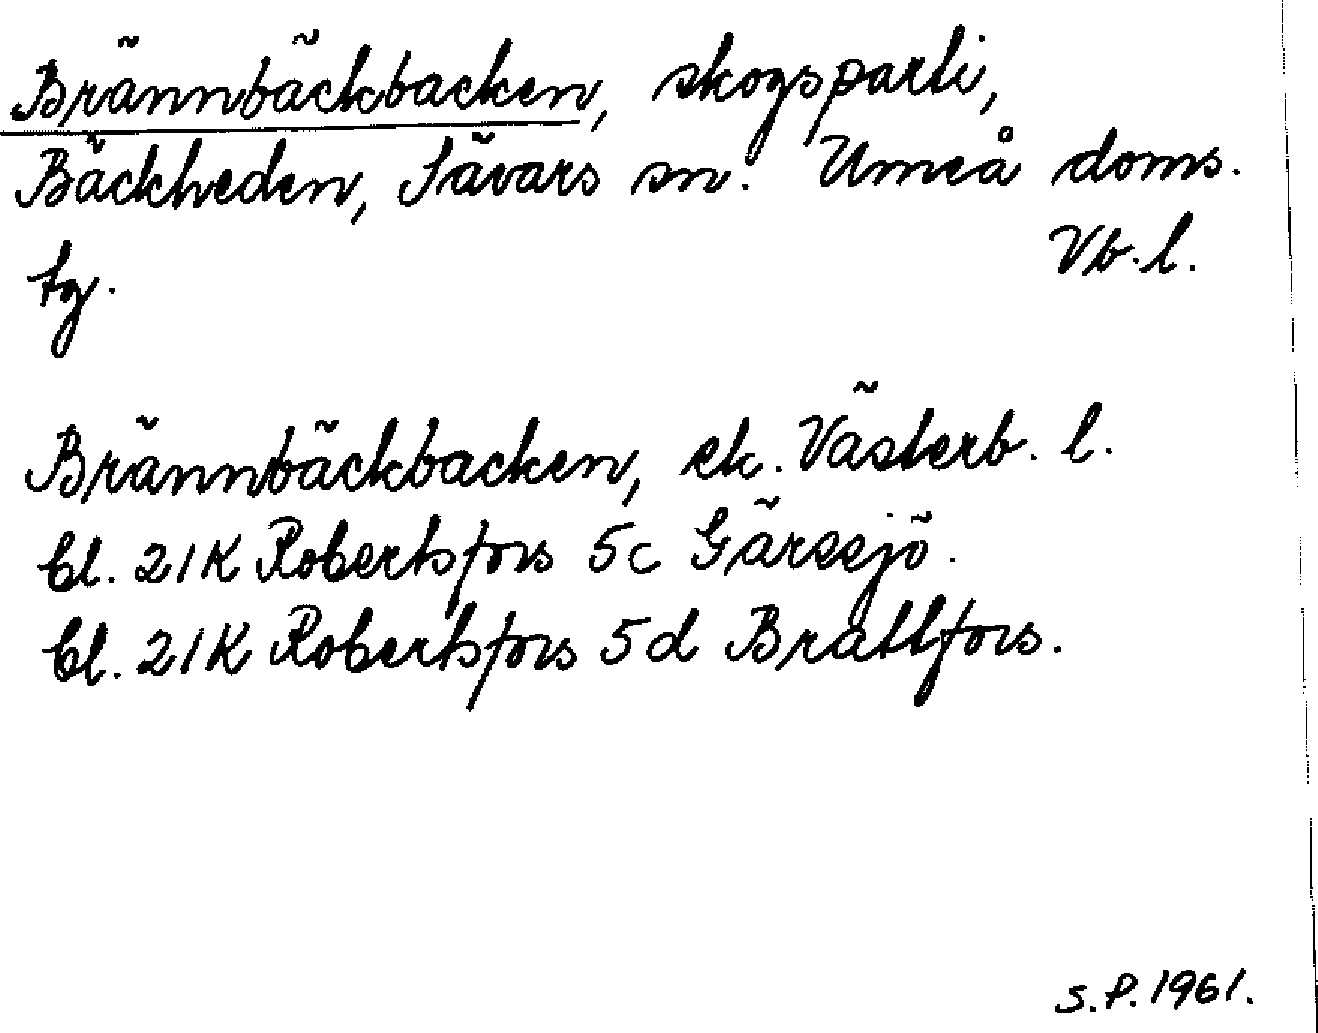 Brännbäckbacken, skogsparti,
Bäckheden, Sävars sn. Umeå doms.
tg. Vb. l.
Brännbäckbacken, ek. Västerb. l.
bl. 21K Robertsfors 5c Gäressjö.
bl. 21K Robertsfors 5d Brattfors.
S.P. 1961.